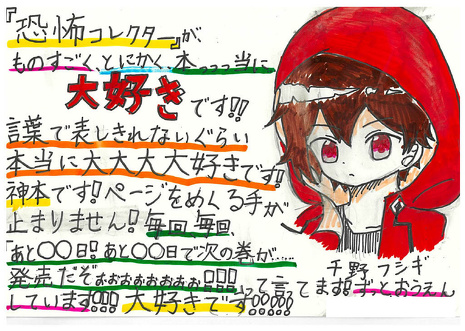 『恐怖コレクター』が、
ものすごく、とにかく、本っっっ当に
大好きです!!
言葉で表しきれないぐらい
本当に大大大大好きです!
神本です!ページをめくる手が
止まりません!毎回、毎回、
「あと〇〇日!あと〇〇日で次の巻が……
発売だぞぉぉぉぉぉぉぉぉ!!!!」って言てます!ずっとおうえん
しています!!!大好きです!
千野フシギ